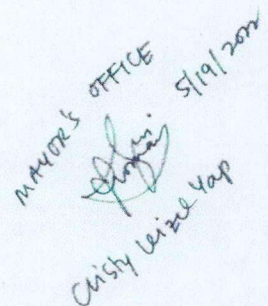 MAYOR'S OFFICE
5/19/2022
Cristy Leizel Yap